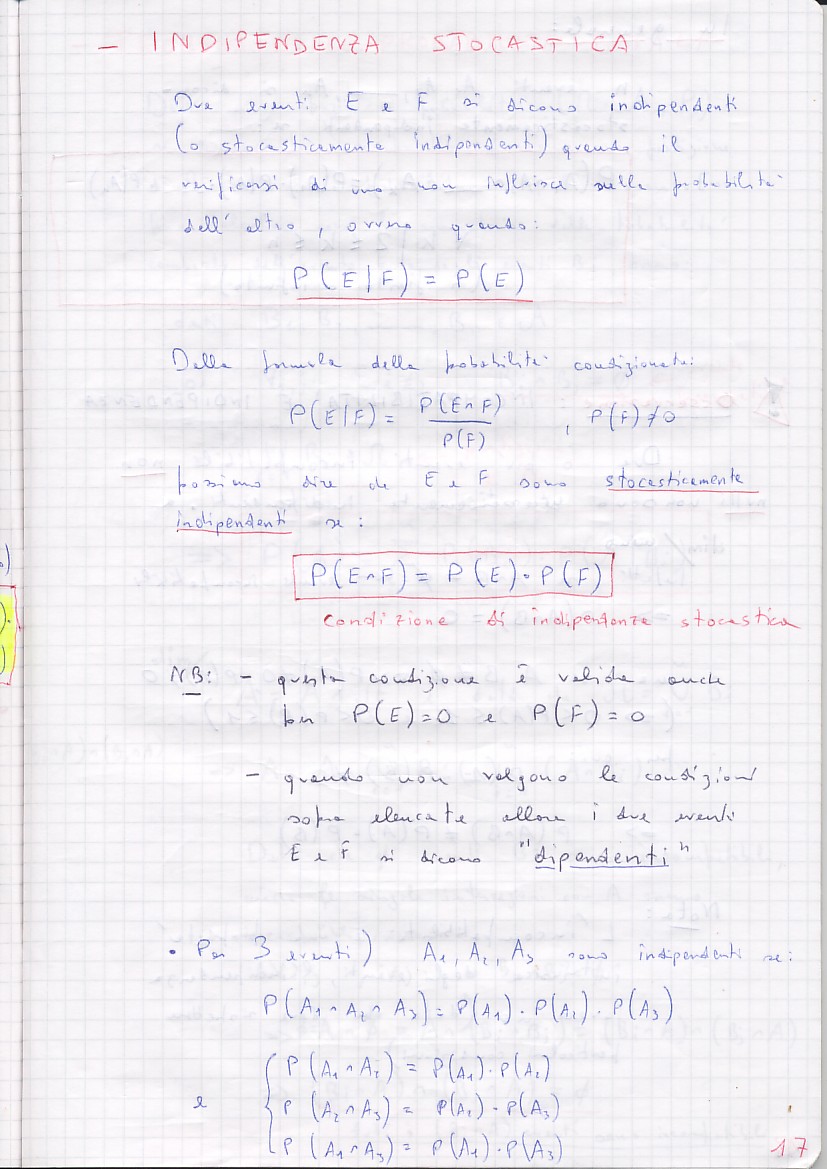 - INDIPENDENZA STOCASTICA
Due eventi E e F si dicono indipendenti
(o stocasticamente indipendenti) quando il
verificarsi di uno non influisce sulla probabilità
dell'altro, ovvero quando:
P(E|F) = P(E)
Dalla formula della probabilità condizionata:
P(E|F) = P(E∩F) / P(F) , P(F)≠0
possiamo dire che E e F sono stocasticamente
indipendenti se:
P(E∩F) = P(E)·P(F)
Condizione di indipendenza stocastica
NB: - questa condizione è valida anche
per P(E)=0 e P(F)=0
- quando non valgono le condizioni
sopra elencate allora i due eventi
E e F si dicono "dipendenti"
• Per 3 eventi) A₁, A₂, A₃ sono indipendenti se:
P(A₁∩A₂∩A₃) = P(A₁)·P(A₂)·P(A₃)
P(A₁∩A₂) = P(A₁)·P(A₂)
e { P(A₂∩A₃) = P(A₂)·P(A₃)
P(A₁∩A₃) = P(A₁)·P(A₃)
17